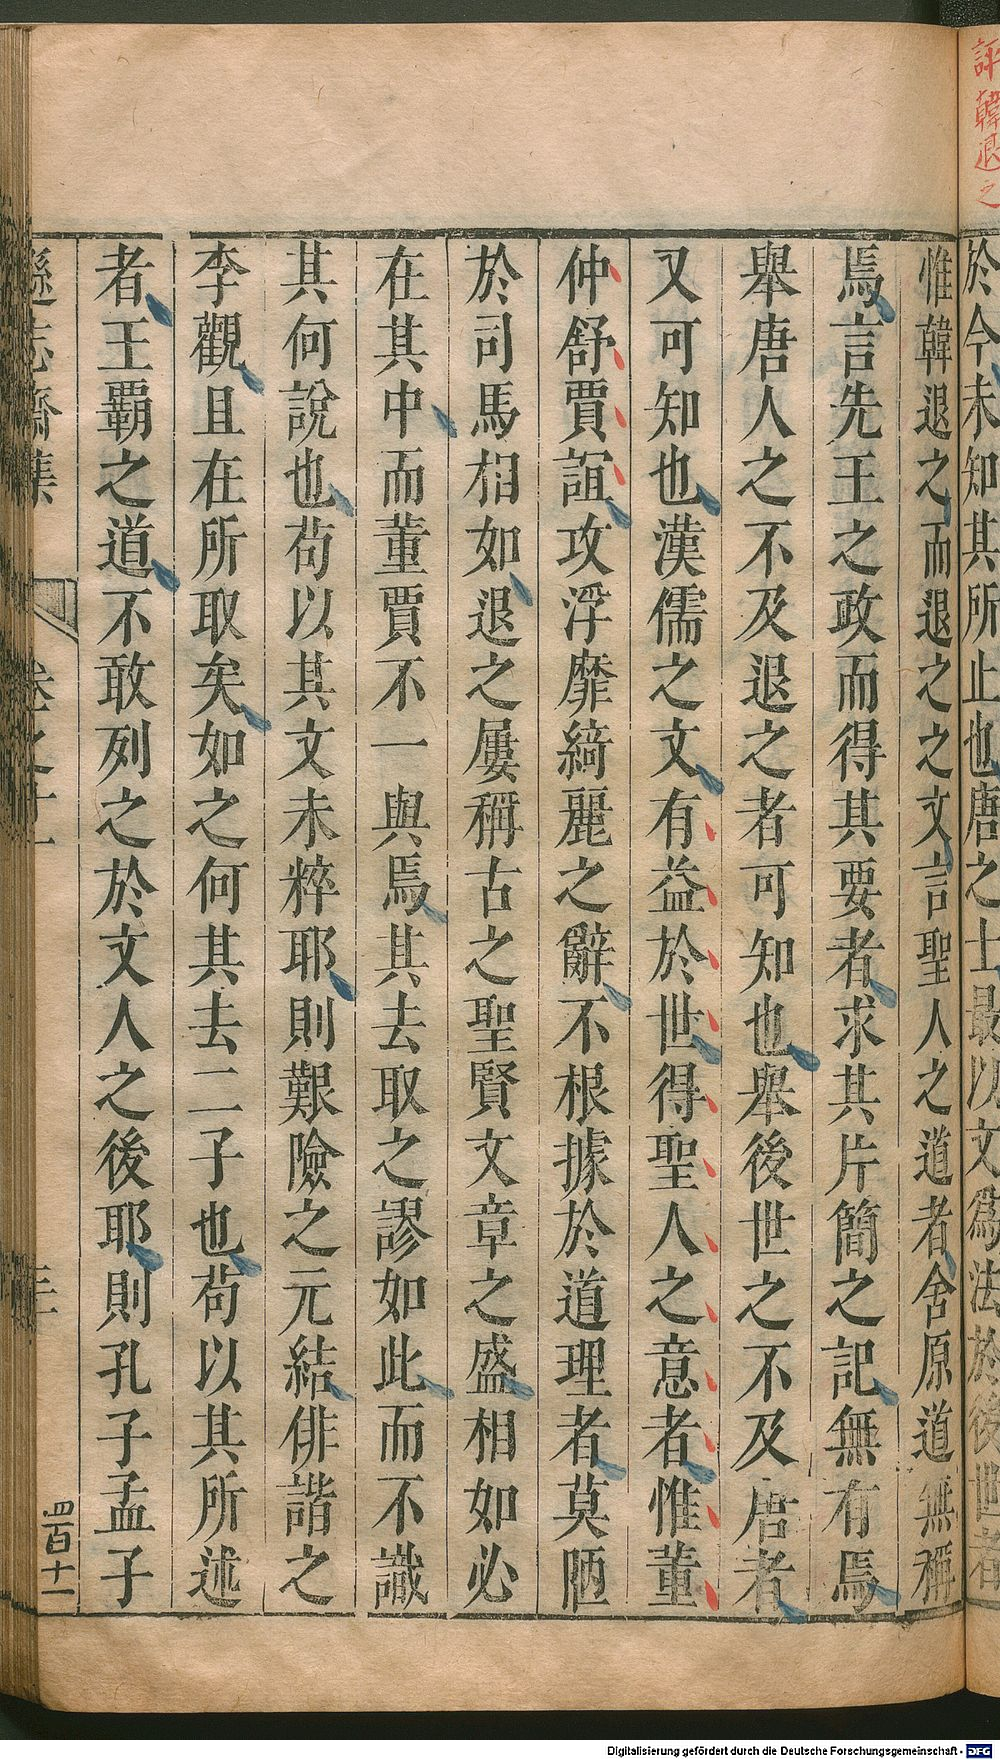 評韓退之
於今未知其所止也唐之士最以文爲法於後世者
惟韓退之而退之之文言聖人之道者舍原道無稱
焉言先王之政而得其要者求其片簡之記無有焉
舉唐人之不及退之者可知也舉後世之不及唐者
又可知也漢儒之文有益於世得聖人之意者惟董
仲舒賈誼攻浮靡綺麗之辭不根據於道理者莫陋
於司馬相如退之屢稱古之聖賢文章之盛相如必
在其中而董賈不一與焉其去取之謬如此而不識
其何說也苟以其文未粹耶則艱險之元結俳諧之
李觀且在所取矣如之何其去二子也苟以其所述
者王覇之道不敢列之於文人之後耶則孔子孟子
遜志齋集
卷之十一
三
四百十一
Digitalisierung gefördert durch die Deutsche Forschungsgemeinschaft - DFG